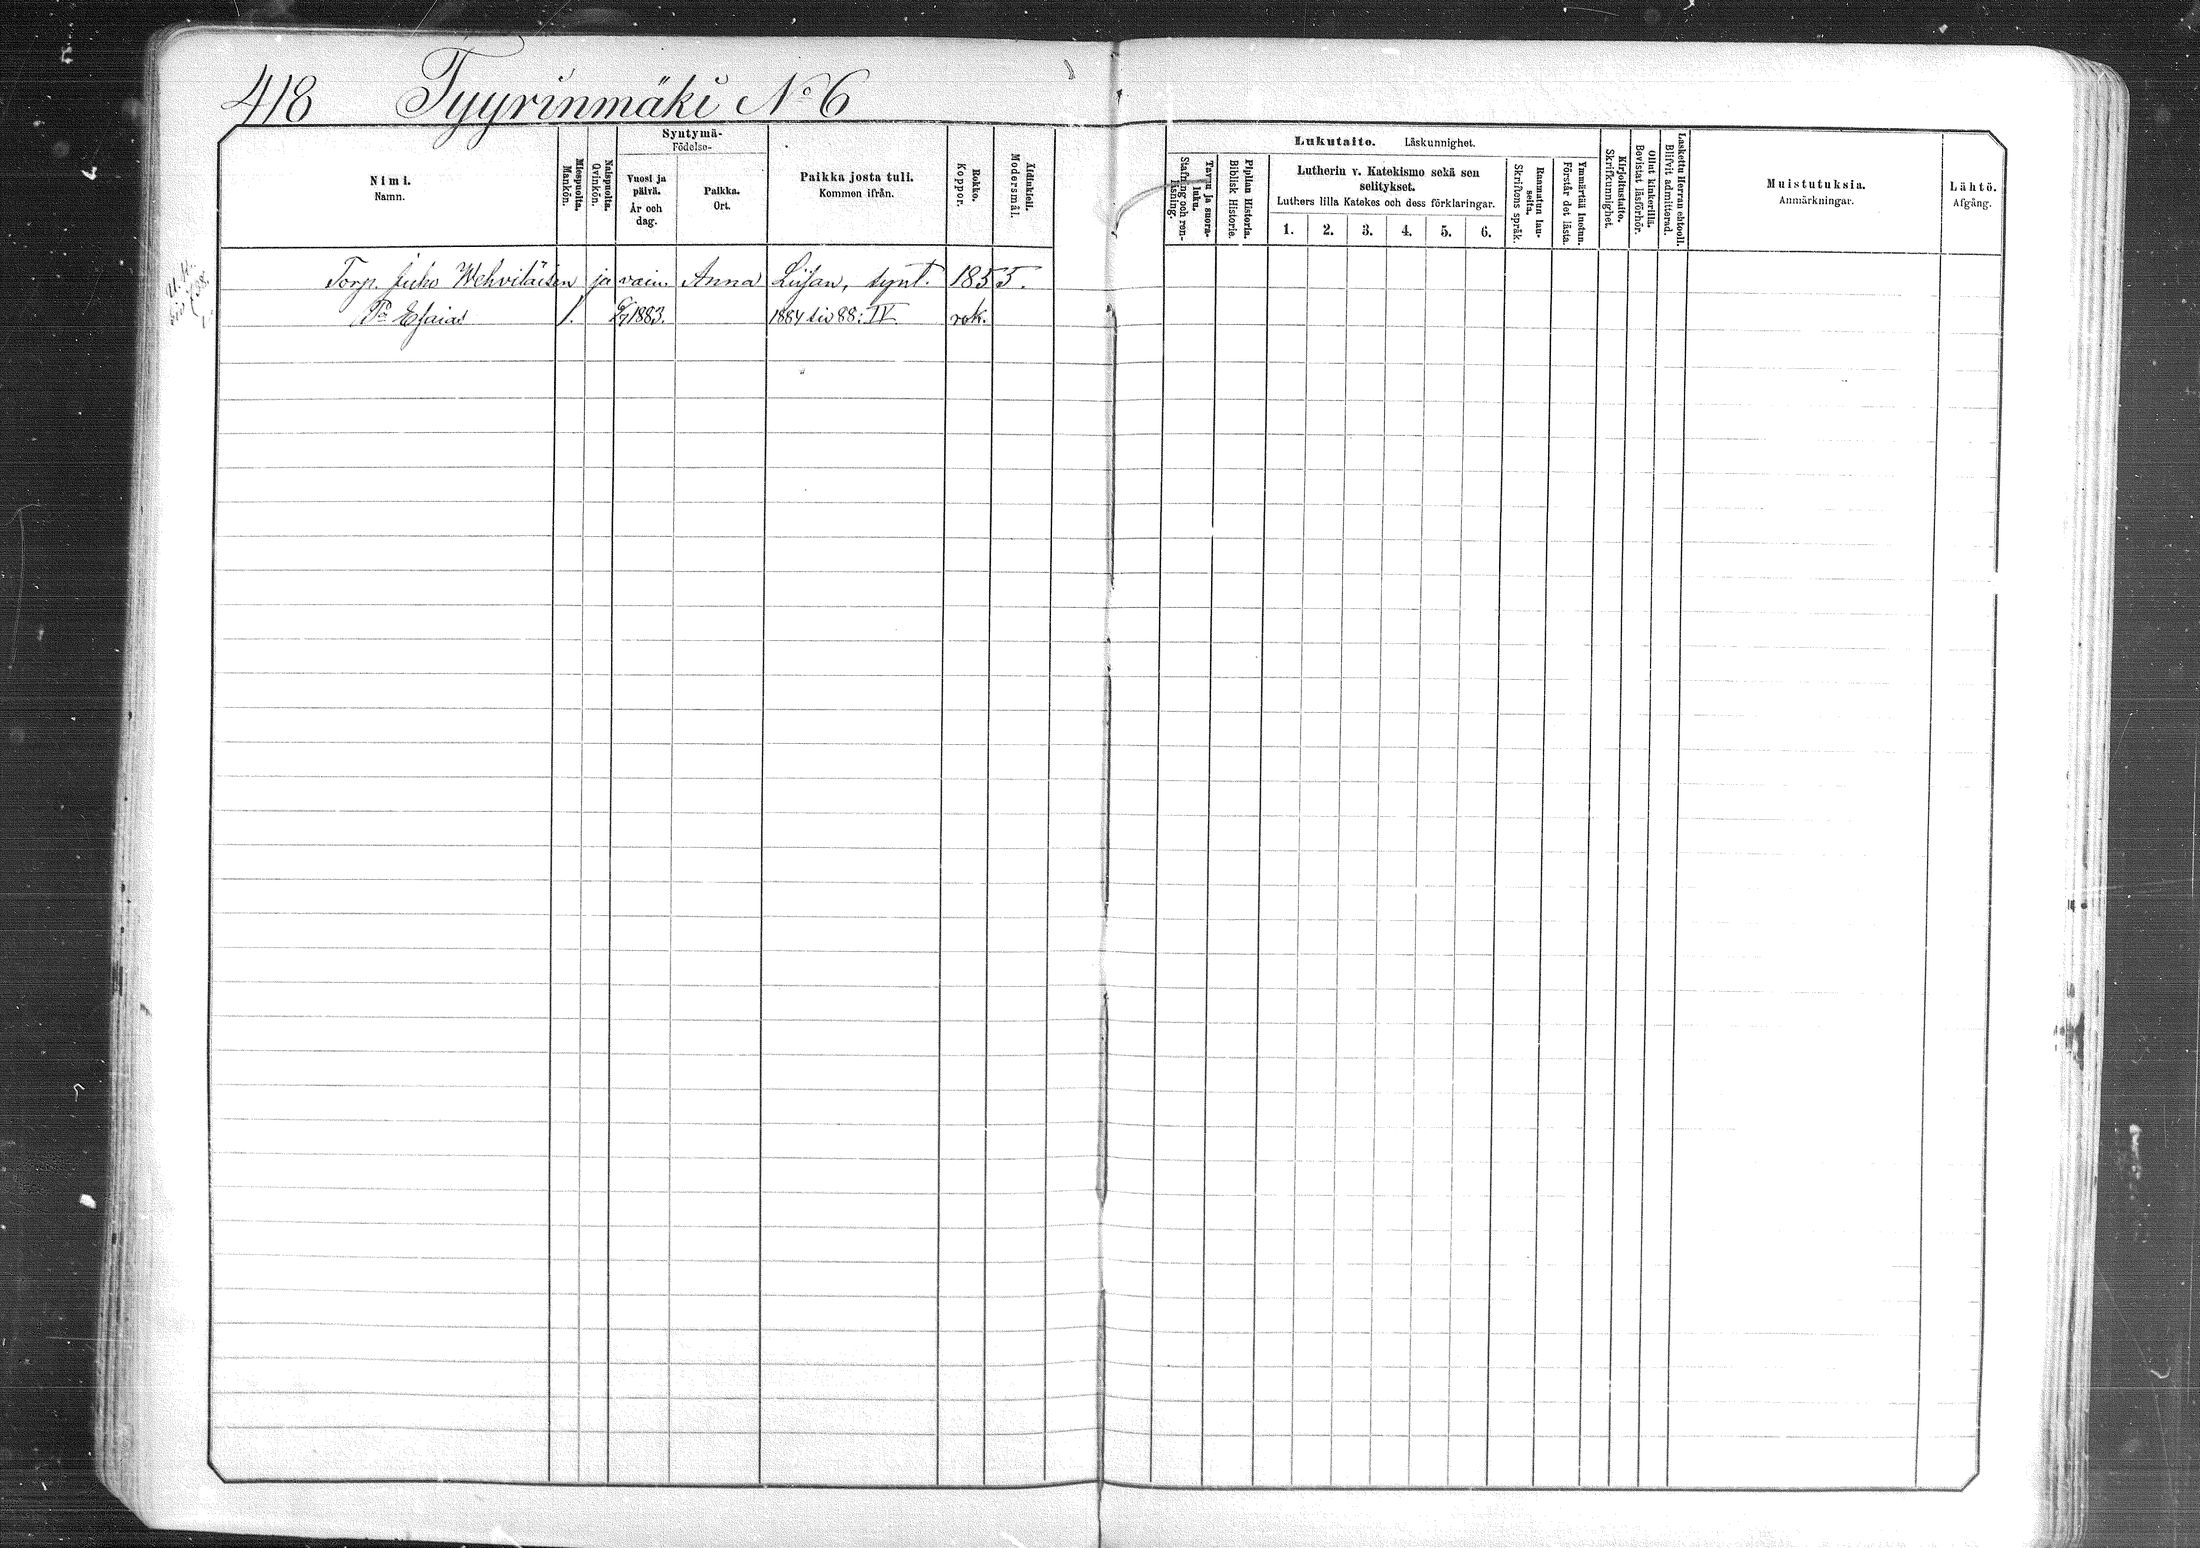 418 Tyyrinmäki No 6
Nimi.
Namn.
Miespuolta.
Mankön.
Naispuolta.
Qvinkön.
Syntymä-
Födelse-
Vuosi ja
päivä.
År och
dag.
Paikka.
Ort.
Paikka josta tuli.
Kommen ifrån.
Rokko.
Koppor.
Äidinkieli.
Modersmål.
Lukutaito. Läskunnighet.
Tavuu ja suora-
luku.
Stafning och ren-
läsning.
Piplian Historia.
Biblisk Historie.
Lutherin v. Katekismo sekä sen
selitykset.
Luthers lilla Katekes och dess förklaringar.
1. 2. 3. 4. 5. 6.
Raamatun lau-
seita.
Skriftens språk.
Ymmärtää luetun.
Förstår det lästa.
Kirjoitustaito.
Skrifkunnighet.
Ollut kinkerillä.
Bevistat läsförhör.
Laskettu Herran ehtooll.
Blifvit admitterad.
Muistutuksia.
Anmärkningar.
Lähtö.
Afgång.
Torp. Juho Wehviläisen ja vaim. Anna Liisan, synt. 1855.
Pa Esaias 1. 1883. 1884 siv 88: IV rok.